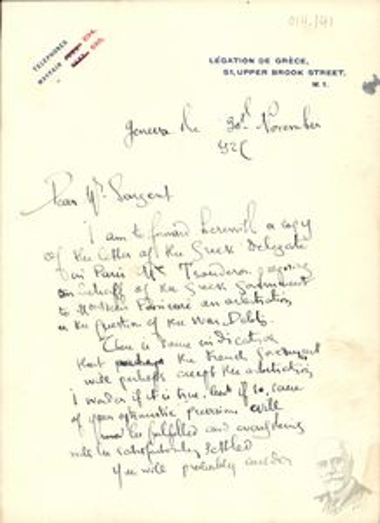 014/41
TELEPHONES
MAYFAIR
LÉGATION DE GRÈCE,
51, UPPER BROOK STREET,
W.1.
Geneva the 30th November
Dear Mr Sargent
I am to forward herewith a copy
of the letter of the Greek Delegate
in Paris Mr
on behalf of the Greek Government
to an arbitration
in the question of the War Debts.
There is some indication
that perhaps the French Government
will perhaps accept the arbitration
I wonder if it is true, but if so, some
of your optimistic previsions will
be fulfilled and everything
will be satisfactorily settled
You will probably consider